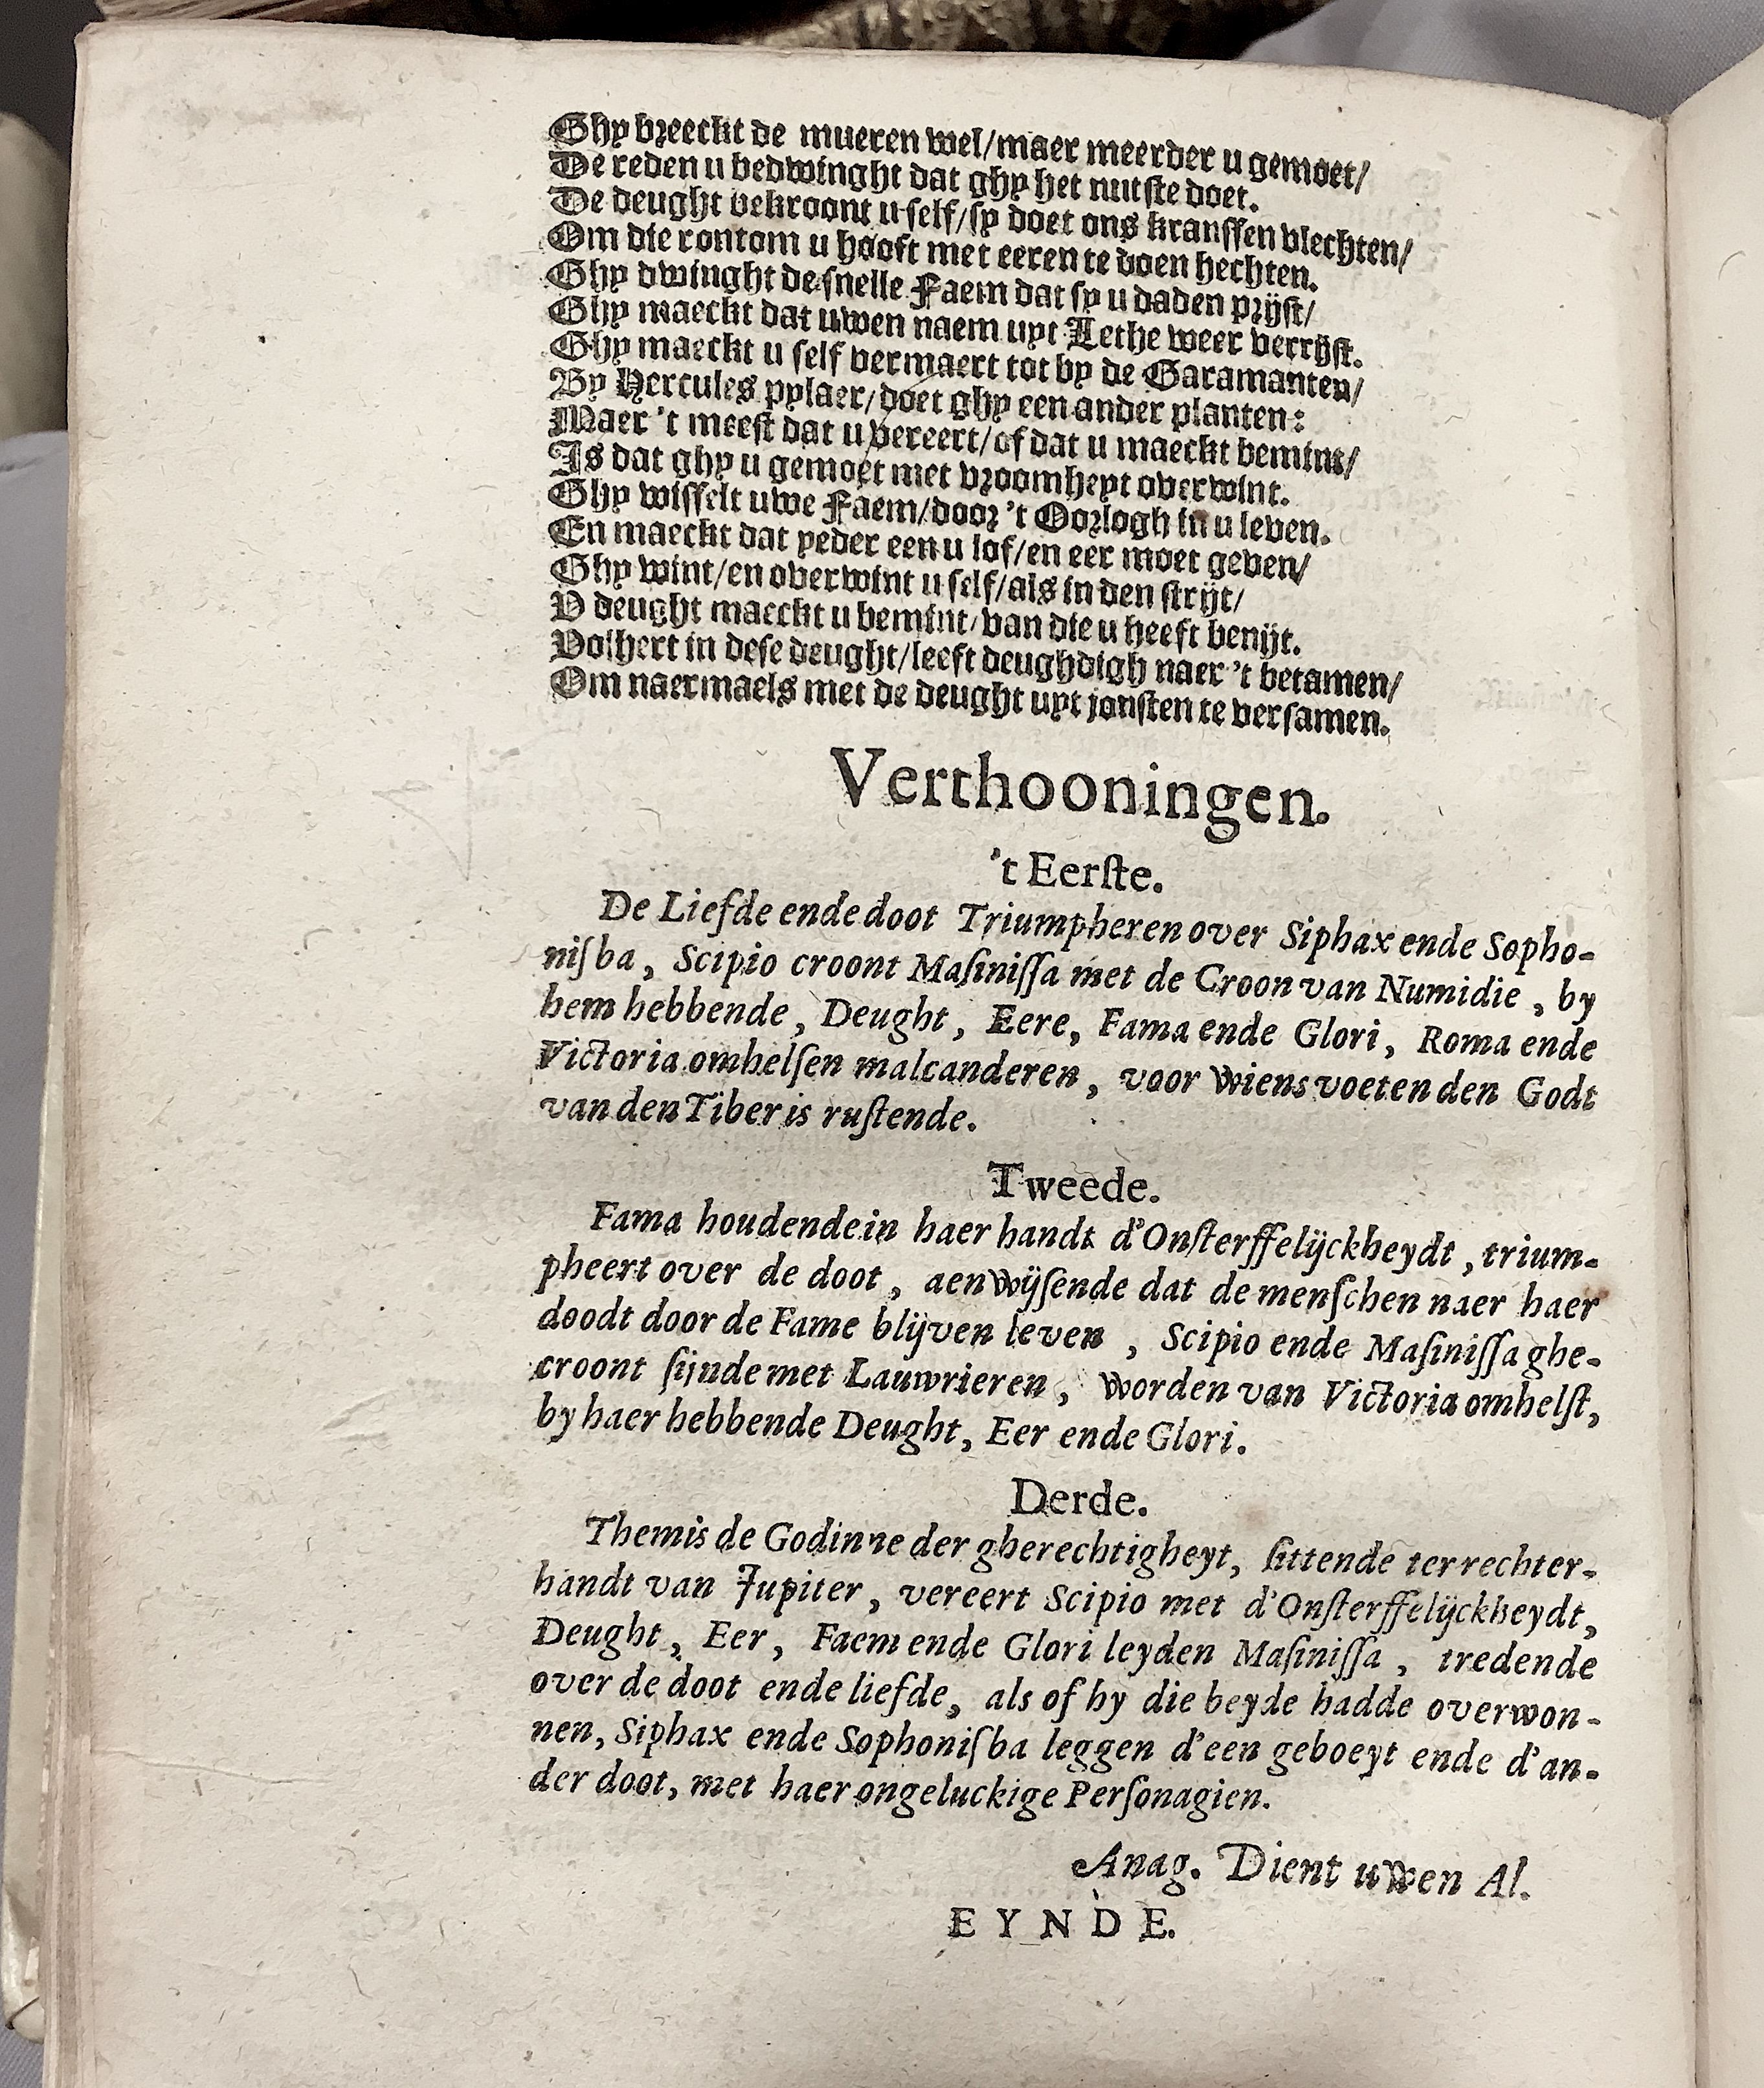 Ghy breeckt de mueren wel/maer meerder u gemoet/
De reden u bedwinght dat ghy het nutste doet.
De deught bekroont u self/sy doet ons kranssen vlechten/
Om die rontom u hooft met eeren te doen hechten.
Ghy dwinght de snelle Faem dat sy u daden prijst/
Ghy maeckt dat uwen naem uyt Lethe weer verrijst.
Ghy maeckt u self vermaert tot by de Garamanten/
By Hercules pylaer/doet ghy een ander planten:
Maer 't meest dat u vereert/of dat u maeckt bemint/
Is dat ghy u gemoet met vroomheyt overwint.
Ghy wisselt uwe Faem/door 't Oorlogh in u leven.
En maeckt dat yeder een u lof/en eer moet geven/
Ghy wint/en overwint u self/als in den strijt/
V deught maeckt u bemint/van die u heeft benijt.
Volhert in dese deught/leeft deughdigh naer 't betamen/
Om naermaels met de deught uyt jonsten te versamen.
Verthooningen.
't Eerſte.
De Liefde ende doot Triumpheren over Siphax ende Sopho-
niſba, Scipio croont Maſiniſſa met de Croon van Numidie, by
hem hebbende, Deught, Eere, Fama ende Glori, Roma ende
Victoria omhelſen malcanderen, voor wiens voeten den Godt
van den Tiber is ruſtende.
Tweede.
Fama houdende in haer handt d'Onſterffelijckheydt, trium-
pheert over de doot, aenwijſende dat de menſchen naer haer
doodt door de Fame blijven leven, Scipio ende Maſiniſſa ghe-
croont ſijnde met Lauwrieren, worden van Victoria omhelſt,
by haer hebbende Deught, Eer ende Glori.
Derde.
Themis de Godinne der gherechtigheyt, ſittende ter rechter-
handt van Jupiter, vereert Scipio met d'Onſterffelijckheydt,
Deught, Eer, Faem ende Glori leyden Maſiniſſa, tredende
over de doot ende liefde, als of hy die beyde hadde overwon-
nen, Siphax ende Sophoniſba leggen d'een geboeyt ende d'an-
der doot, met haer ongeluckige Perſonagien.
Anag. Dient uwen Al.
EYNDE.